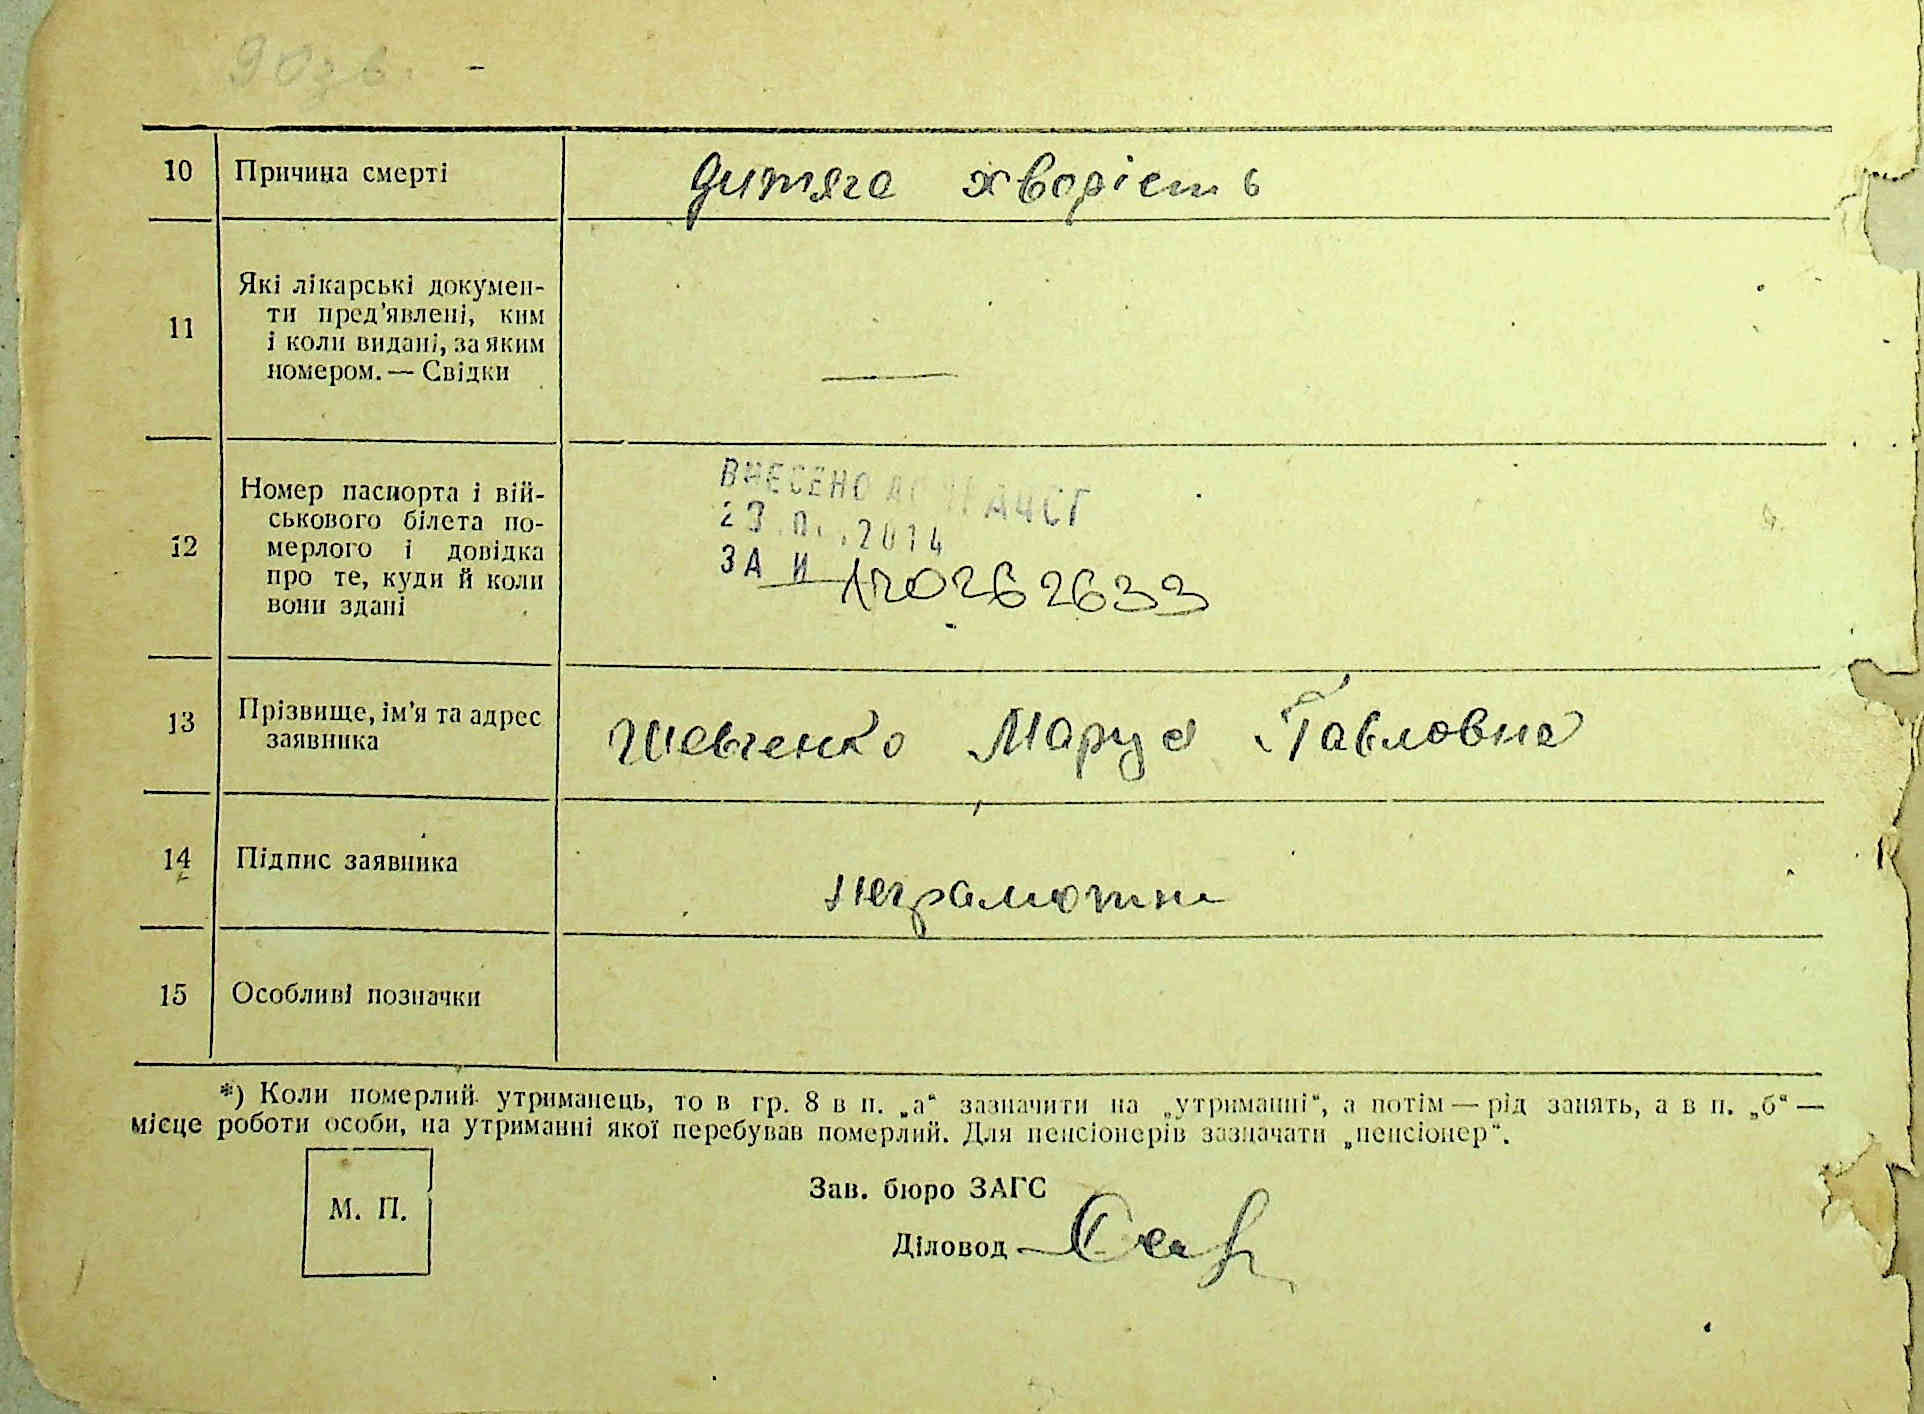 10 Причина смерті дитяга хворість
11 Які лікарські докумен-
ти пред'явлені, ким
і коли видані, за яким
номером. — Свідки —
12 Номер паспорта і вій-
ськового білета по-
мерлого і довідка
про те, куди й коли
вони здані
ВНЕСЕНО ДО
2014
ЗА
00262633
13 Прізвище, ім'я та адрес
заявника
Шевченко Маруся Павловна
14 Підпис заявника
неграмотни
15 Особливі позначки
*) Коли померлий утриманець, то в гр. 8 в п. „а“ зазначити на „утриманні“, а потім — рід занять, а в п. „б“ —
місце роботи особи, на утриманні якої перебував померлий. Для пенсіонерів зазначати „пенсіонер“.
М. П.
Зав. бюро ЗАГС
Діловод